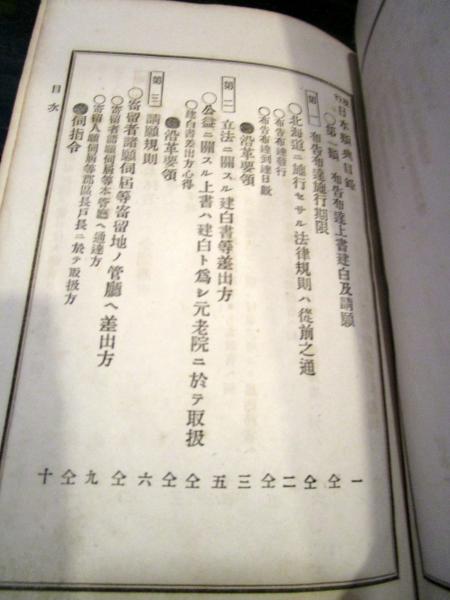 現行日本類典目録
○第一類 布告布達上書建白及請願
第一 布告布達施行期限 一
○北海道ニ施行セサル法律規則ハ從前之通 仝
○布告布達發行 仝
○布告布達到達日數 二
沿革要領 仝
第二 立法ニ關スル建白書等差出方 三
○公益ニ關スル上書ハ建白ト爲シ元老院ニ於テ取扱 五
○建白書差出方心得 仝
沿革要領 仝
第三 請願規則 六
○寄留者諸願伺屆等寄留地ノ管廳ヘ差出方 仝
○寄留者諸願伺屆等本管廳ヘ通達方 九
○寄留人願伺屆等郡區長戸長ニ於テ取扱方 仝
伺指令 十
目次